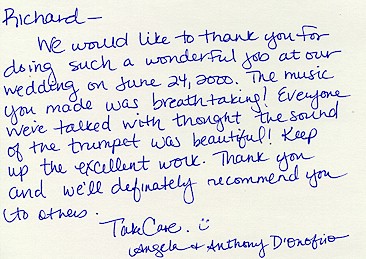 Richard—
We would like to thank you for
doing such a wonderful job at our
wedding on June 24, 2000. The music
you made was breathtaking! Everyone
we've talked with thought the sound
of the trumpet was beautiful! Keep
up the excellent work. Thank you
and we'll definately recommend you
to others.
Take Care. ☺
Angela & Anthony D'Onofrio